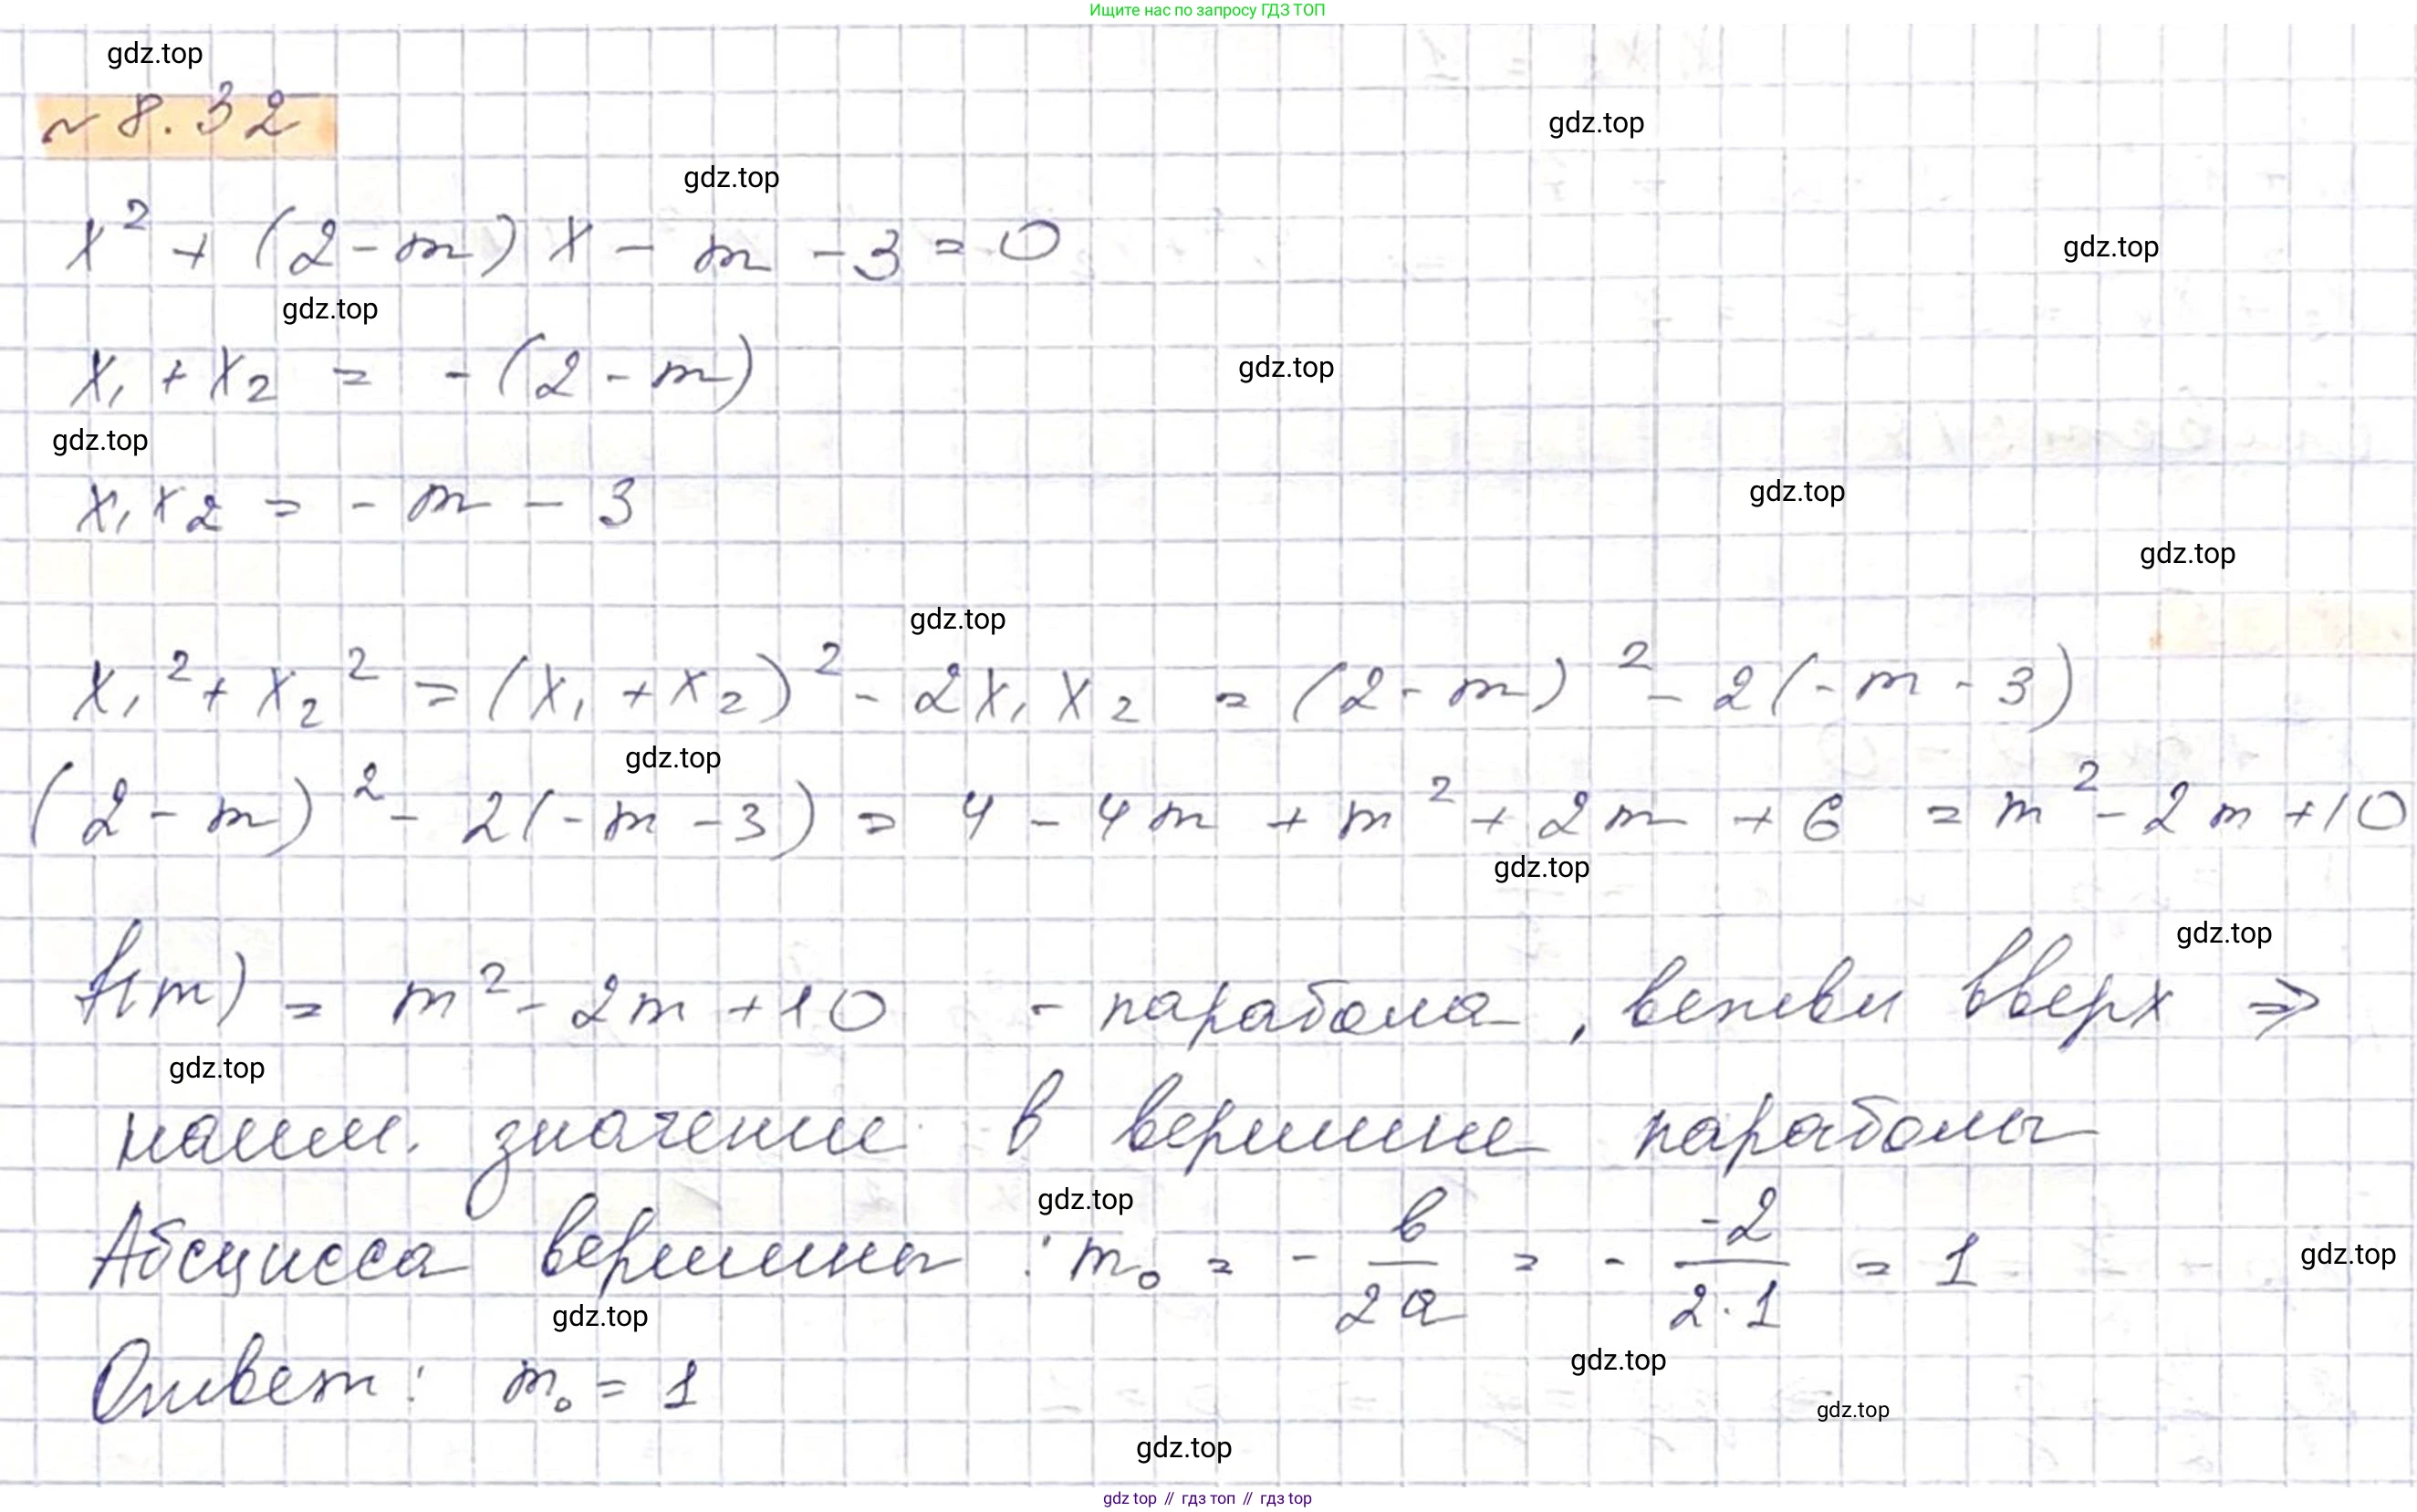 Ищите нас по запросу ГДЗ ТОП
gdz.top
№ 8.32
gdz.top
gdz.top
x² + (2 - m) x - m - 3 = 0
gdz.top
gdz.top
x₁ + x₂ = - (2 - m)
gdz.top
gdz.top
x₁ x₂ = - m - 3
gdz.top
gdz.top
gdz.top
x₁² + x₂² = (x₁ + x₂)² - 2x₁ x₂ = (2 - m)² - 2(- m - 3)
gdz.top
(2 - m)² - 2(- m - 3) = 4 - 4m + m² + 2m + 6 = m² - 2m + 10
gdz.top
gdz.top
f(m) = m² - 2m + 10 - парабола, ветви вверх ⇒
gdz.top
наим. значение в вершине параболы
gdz.top
Абсцисса вершины : m₀ = - в/2a = - -2/2·1 = 1
gdz.top
gdz.top
gdz.top
Ответ: m₀ = 1
gdz.top
gdz.top
gdz top // гдз топ // гдз top